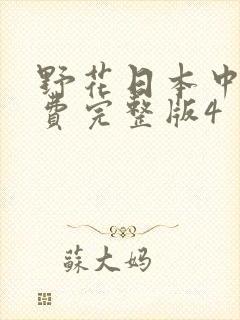 野花日本中
費完整版4
蘇大妈